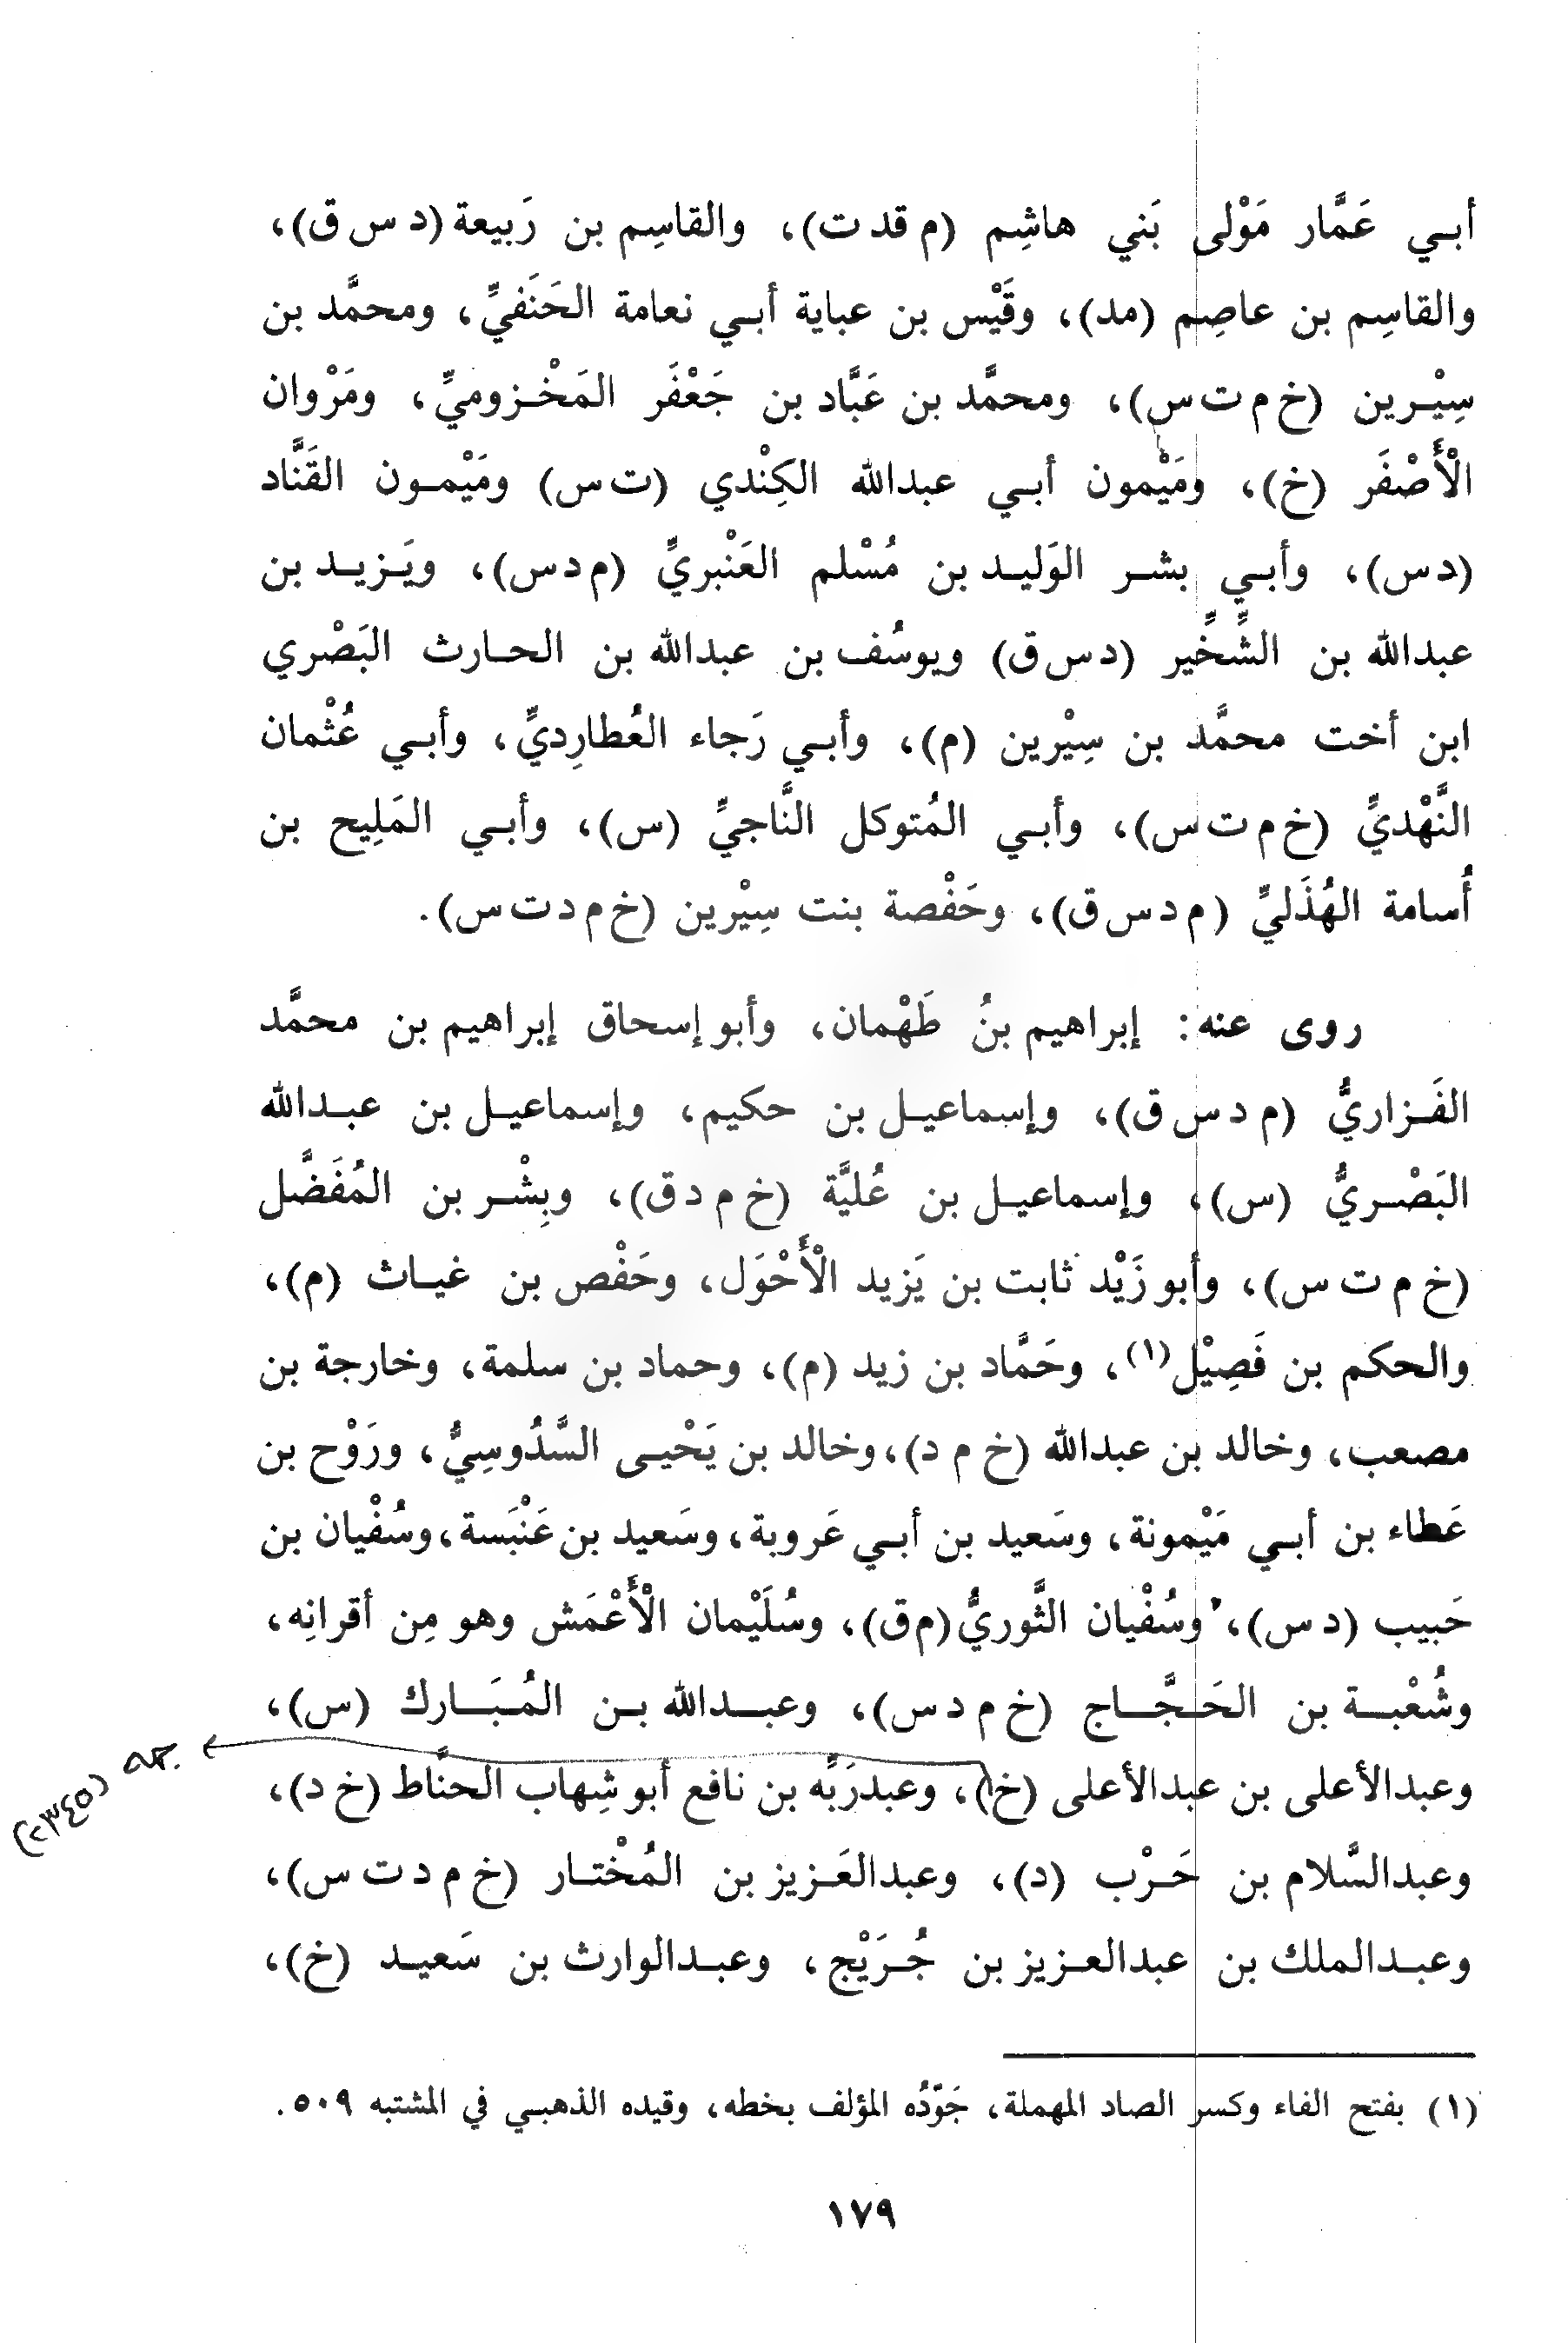 أبي عَمَّار مَوْلى بَني هاشِم (م قد ت)، والقاسِم بن رَبيعة (د س ق)،
والقاسِم بن عاصِم (مد)، وقَيْس بن عباية أبي نعامة الحَنَفيِّ، ومحمَّد بن
سِيْرين (خ م ت س)، ومحمَّد بن عَبَّاد بن جَعْفَر المَخْزوميِّ، ومَرْوان
الْأَصْفَر (خ)، ومَيْمون أبي عبدالله الكِنْدي (ت س) ومَيْمون القَنَّاد
(د س)، وأبي بشر الوَليد بن مُسْلم العَنْبريِّ (م د س)، ويَزيد بن
عبدالله بن الشِّخِّير (د س ق) ويوسُف بن عبدالله بن الحارث البَصْري
ابن أخت محمَّد بن سِيْرين (م)، وأبي رَجاء العُطارِديِّ، وأبي عُثْمان
النَّهْديِّ (خ م ت س)، وأبي المُتوكل النَّاجيِّ (س)، وأبي المَلِيح بن
أُسامة الهُذَليِّ (م د س ق)، وحَفْصة بنت سِيْرين (خ م د ت س).
روى عنه: إبراهيم بنُ طَهْمان، وأبو إسحاق إبراهيم بن محمَّد
الفَزاريُّ (م د س ق)، وإسماعيل بن حكيم، وإسماعيل بن عبدالله
البَصْريُّ (س)، وإسماعيل بن عُليَّة (خ م د ق)، وبِشْر بن المُفَضَّل
(خ م ت س)، وأبو زَيْد ثابت بن يَزيد الْأَحْوَل، وحَفْص بن غياث (م)،
والحكم بن فَصِيْل(١)، وحَمَّاد بن زيد (م)، وحماد بن سلمة، وخارجة بن
مصعب، وخالد بن عبدالله (خ م د)، وخالد بن يَحْيى السَّدُوسِيُّ، ورَوْح بن
عَطاء بن أبي مَيْمونة، وسَعيد بن أبي عَروبة، وسَعيد بن عَنْبَسة، وسُفْيان بن
حَبيب (د س)، وسُفْيان الثَّوريُّ (م ق)، وسُلَيْمان الْأَعْمَش وهو مِن أقرانِه،
وشُعْبة بن الحَجَّاج (خ م د س)، وعبدالله بن المُبَارك (س)،
وعبدالأعلى بن عبدالأعلى (خ)، وعبدرَبِّه بن نافع أبو شِهاب الحنَّاط (خ د)،
جه (٢٣٤٥)
وعبدالسَّلام بن حَرْب (د)، وعبدالعَزيز بن المُخْتار (خ م د ت س)،
وعبدالملك بن عبدالعزيز بن جُرَيْج، وعبدالوارث بن سَعيد (خ)،
(١) بفتح الفاء وكسر الصاد المهملة، جَوّدُه المؤلف بخطه، وقيده الذهبي في المشتبه ٥٠٩.
١٧٩